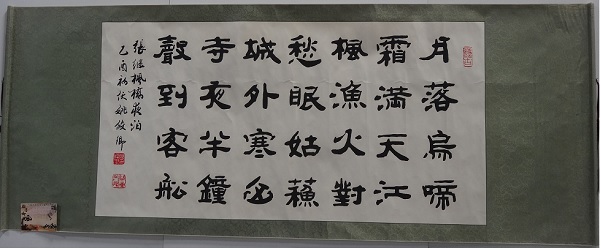 月落烏啼
霜滿天江
楓漁火對
愁眠姑蘇
城外寒山
寺夜半鐘
聲到客船
張继楓橋夜泊
乙酉初伏姚俊卿